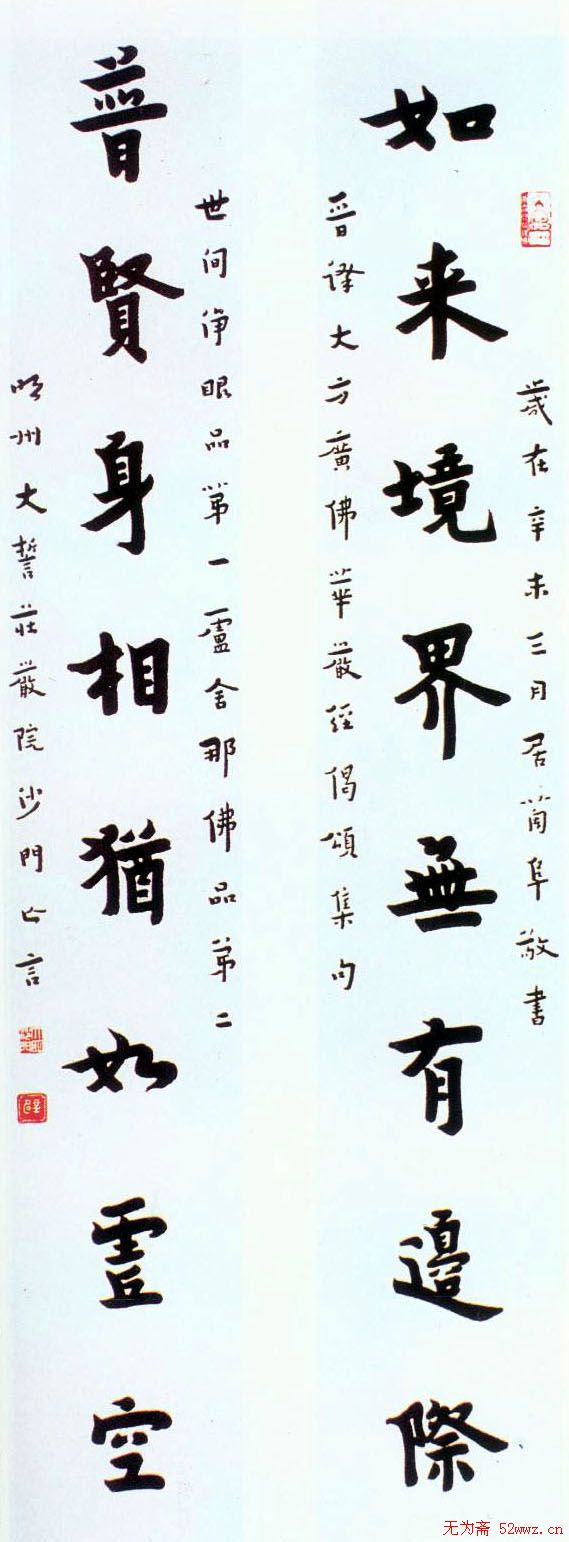 歲在辛未三月居蕳阜敬書
如来境界無有邊際
晉譯大方廣佛華嚴經偈頌集句
世间净眼品第一盧舍那佛品第二
普賢身相猶如虛空
明州大誓莊嚴院沙門亡言
无为斋 52wwz.cn